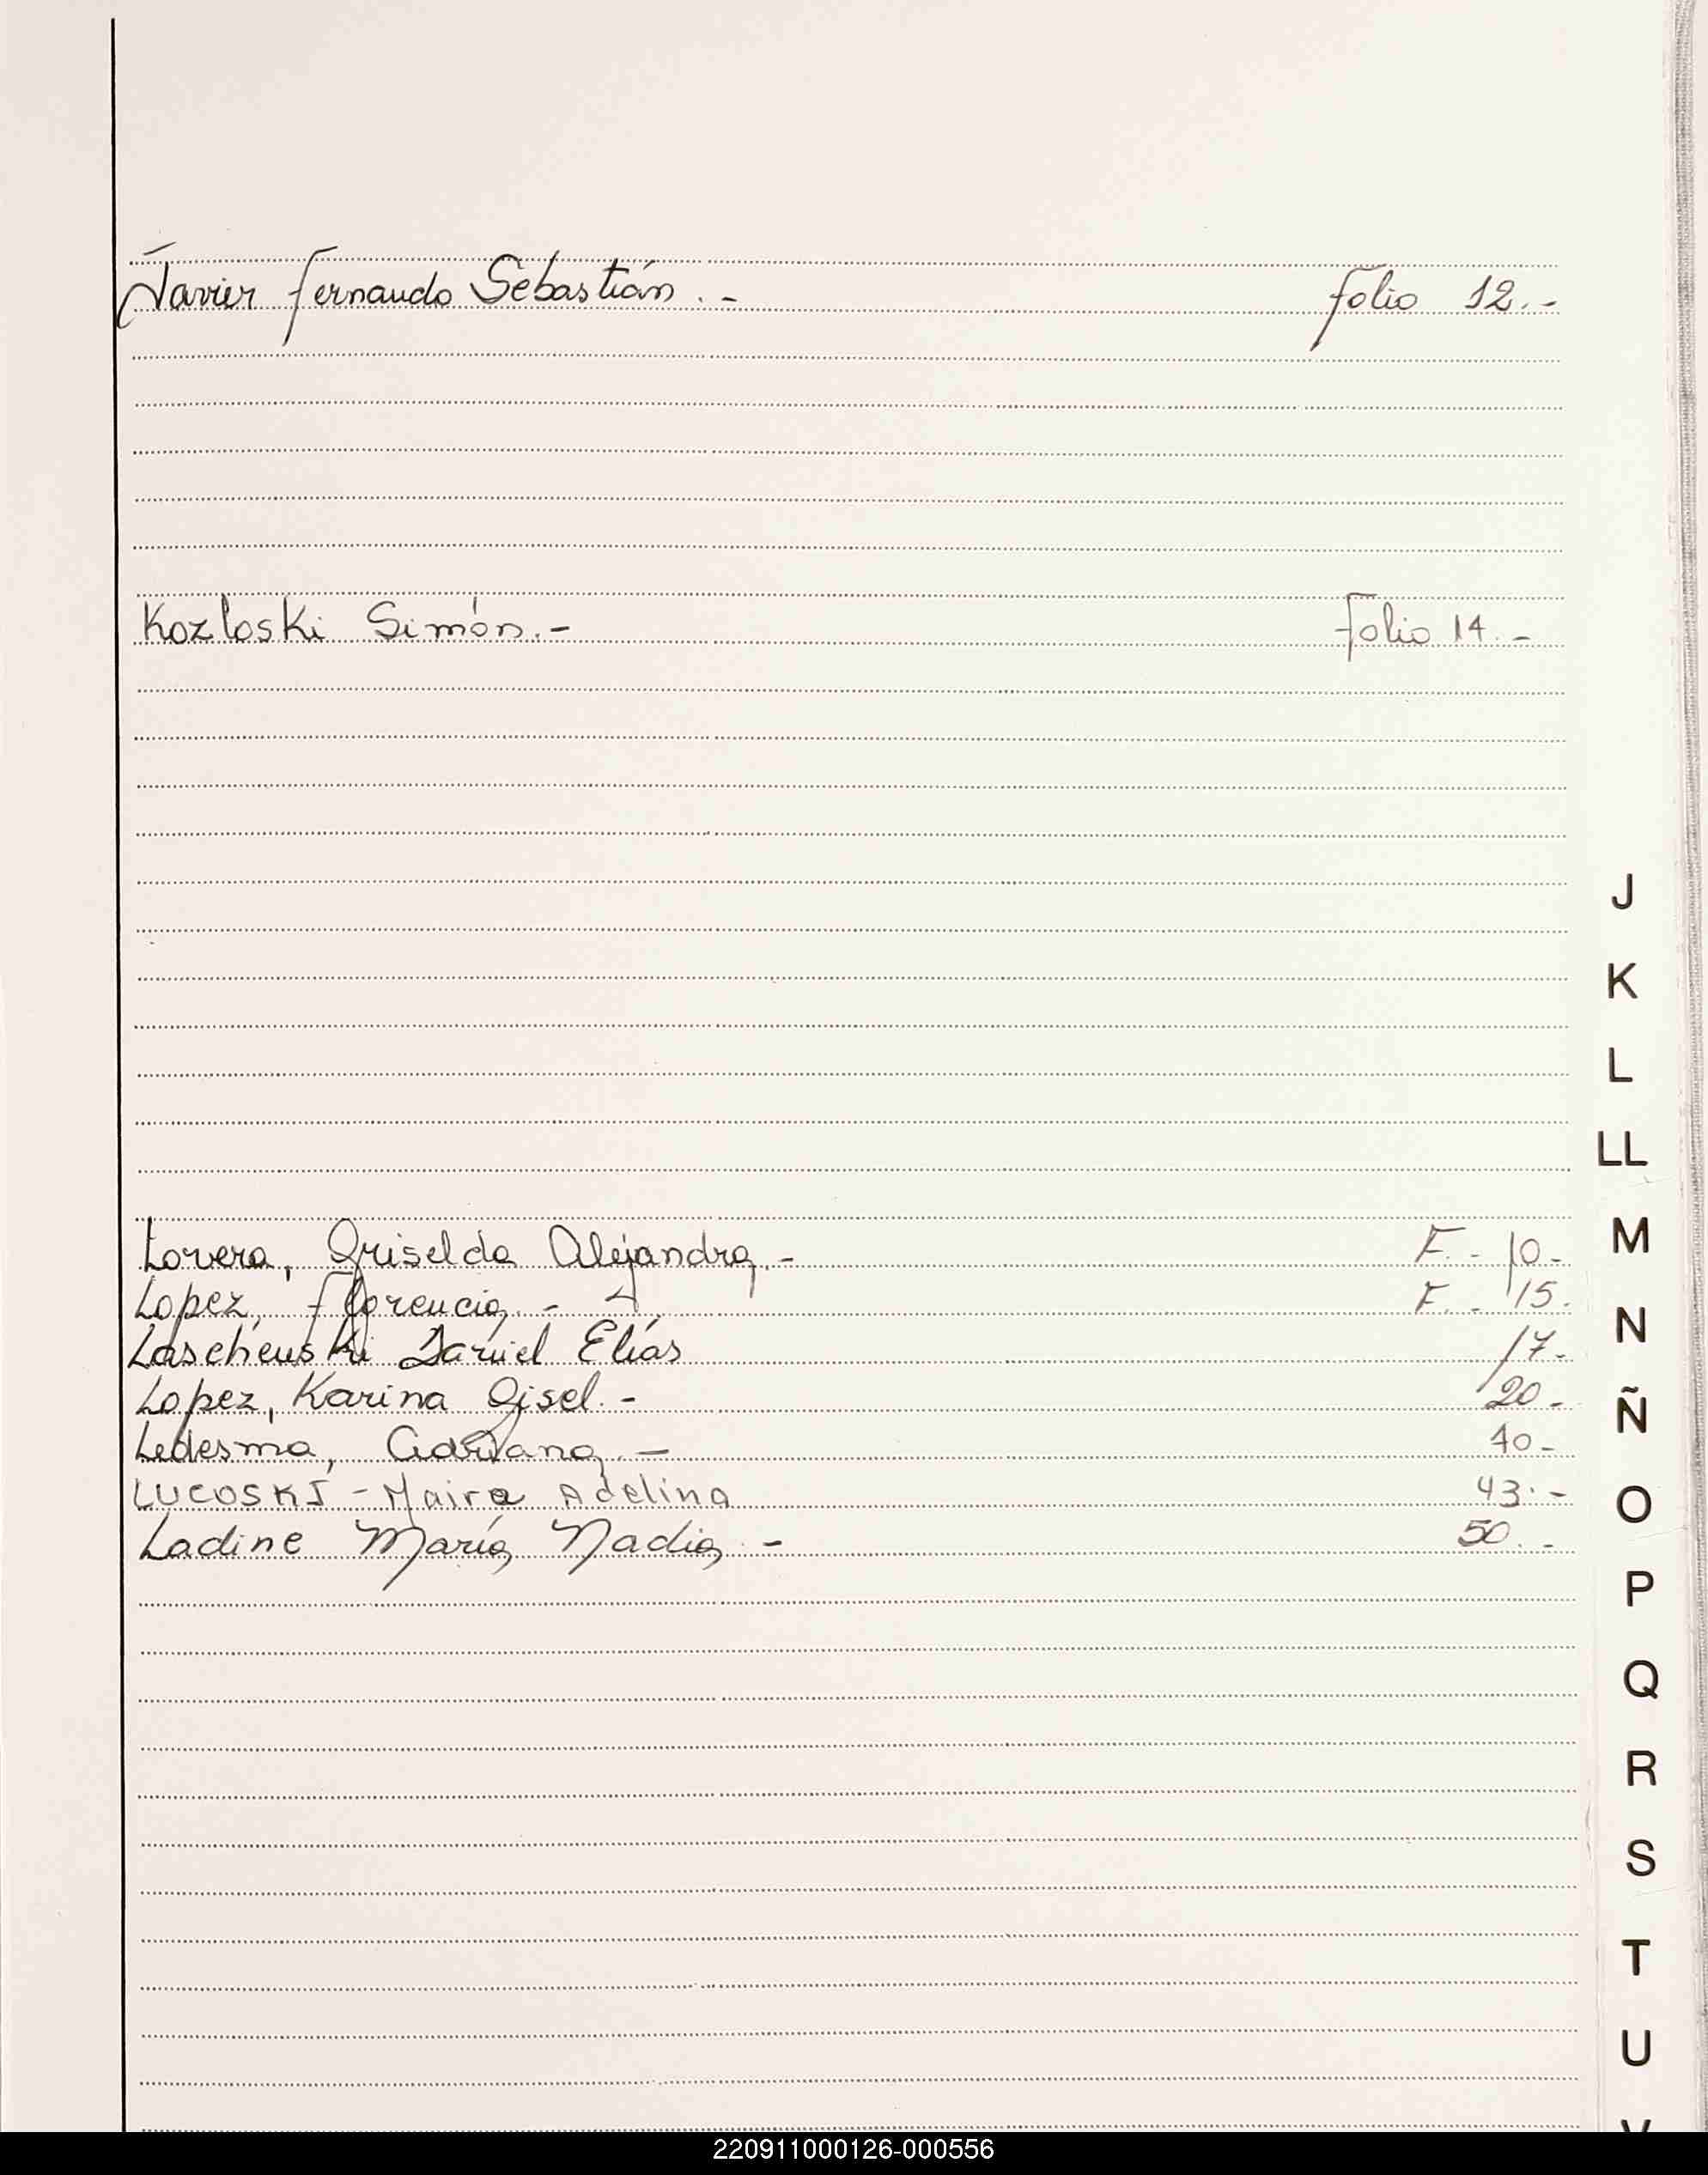 Javier Fernando Sebastián.- Folio 12.-
Kozloski Simón.- Folio 14.-
J
K
L
LL
Lovera, Griselda Alejandra.- F.- 10.-
M
Lopez, Florencia.- F.- 15.
N
Lascheuski Daniel Elías 17.-
Lopez, Karina Gisel.- 20.-
Ñ
Ledesma, Adriana.- 40-
LUCOSKI - Maira Adelina 43.-
O
Ladine María Nadia.- 50.-
P
Q
R
S
T
U
V
220911000126-000556